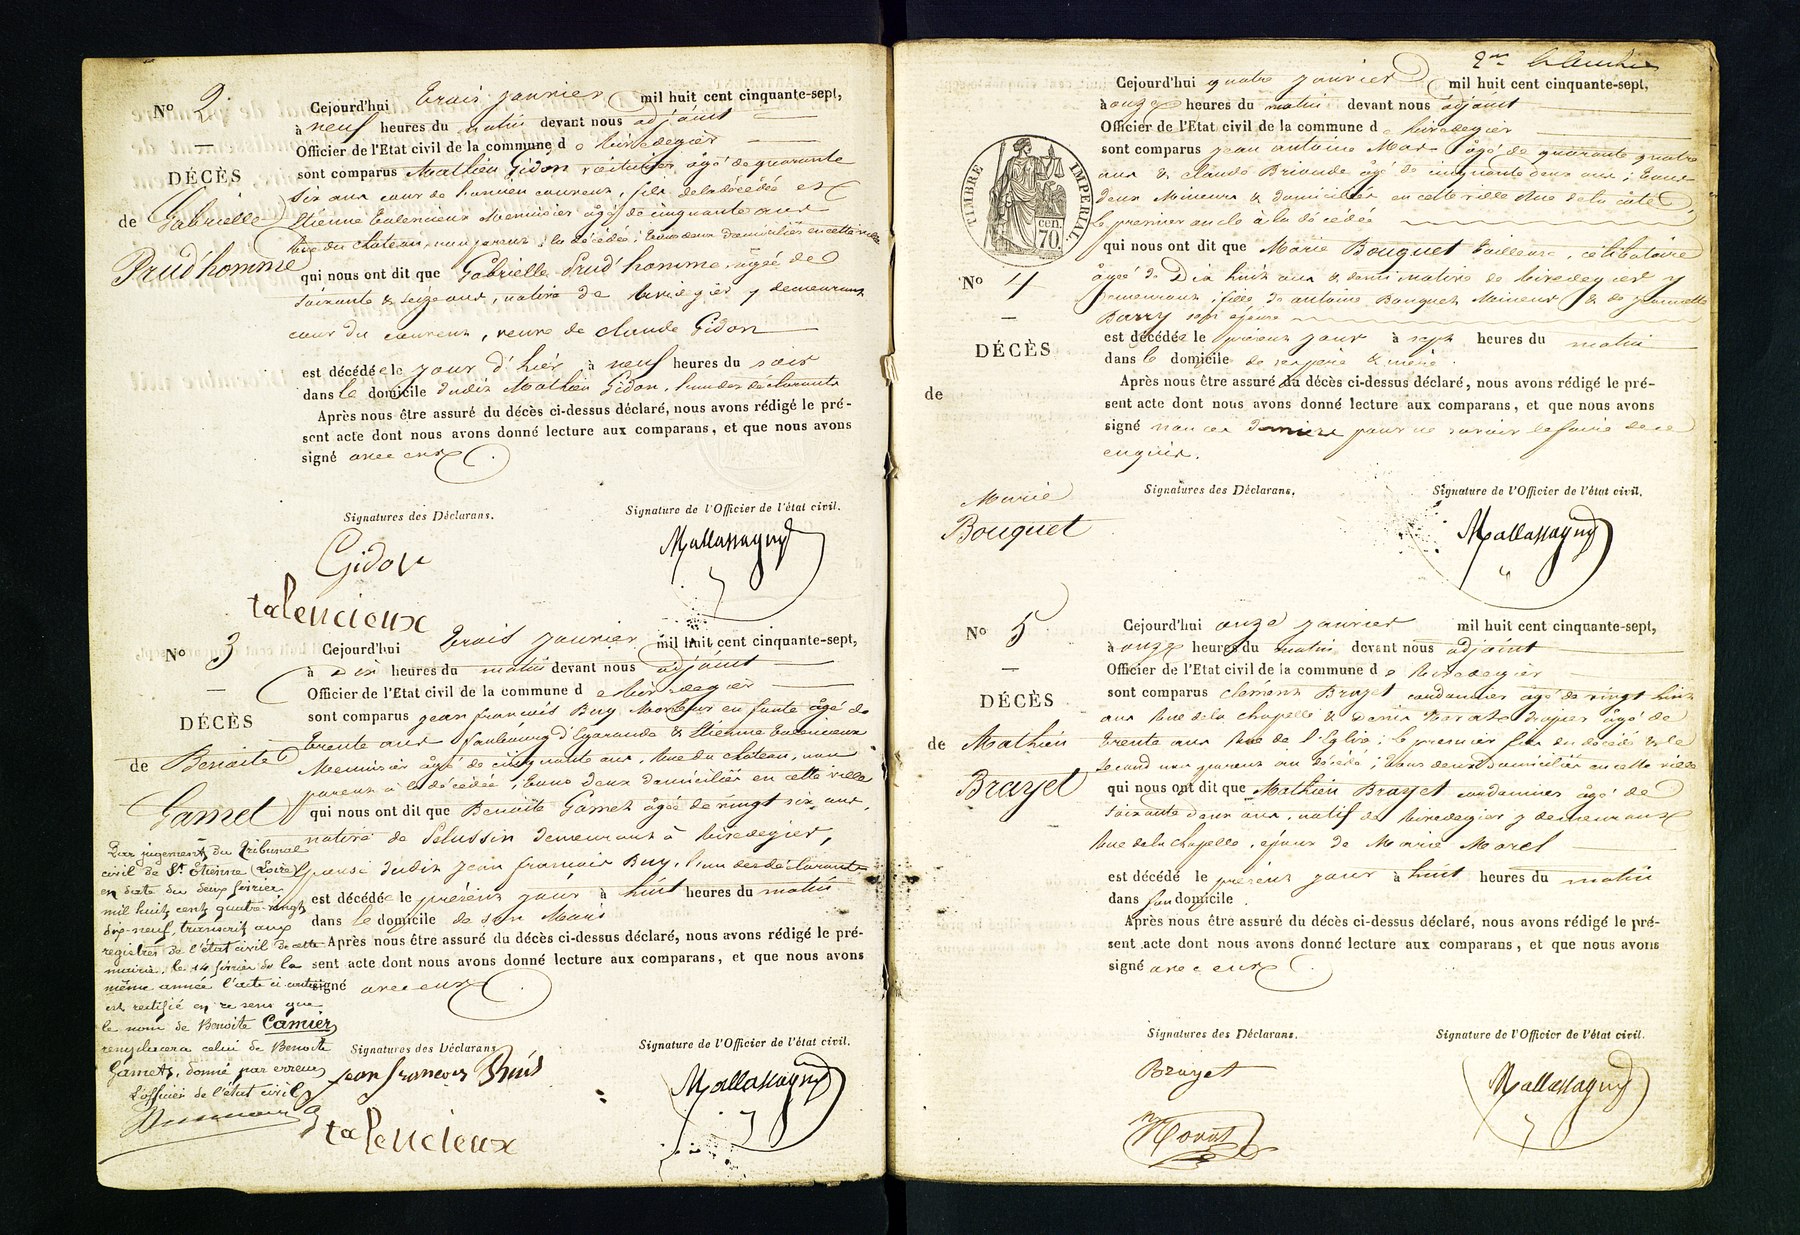 No 2
DÉCÈS
de Gabrielle
Prud'homme
Cejourd'hui trois janvier mil huit cent cinquante-sept,
à neuf heures du matin devant nous adjoint
Officier de l'Etat civil de la commune de Rivedegier
sont comparus Mathieu Gidon voiturier âgé de quarante
six ans cour de l'ancien couvent, fils de la décédée et
Etienne Talencieux Menuisier âgé de cinquante ans
Rue du château, non parent à la décédée ; tous deux domiciliés en cette ville
qui nous ont dit que Gabrielle Prud'homme, agée de
soixante & seize ans, native de Rivedegier y demeurant
cour du couvent, veuve de claude Gidon
est décédée le jour d'hier à neuf heures du soir
dans le domicile dudit Mathieu Gidon, l'un des déclarants
Après nous être assuré du décès ci-dessus déclaré, nous avons rédigé le pré-
sent acte dont nous avons donné lecture aux comparans, et que nous avons
signé avec eux.
Signatures des Déclarans.
Signature de l'Officier de l'état civil.
Gidon
Mallassagny
talencieux
No 3
DÉCÈS
de Benoite
Gamet
Cejourd'hui trois janvier mil huit cent cinquante-sept,
à Dix heures du matin devant nous adjoint
Officier de l'Etat civil de la commune de Rivedegier
sont comparus jean françois Buy Mouleur en fonte âgé de
trente ans faubourg d'Egarande & Etienne Talencieux
Menuisier âgé de cinquante ans, Rue du château, non
parent à la décédée ; tous deux domiciliés en cette ville
qui nous ont dit que Benoite Gamet âgée de vingt six ans,
native de Pelussin demeurant à Rivedegier,
épouse dudit jean françois Buy, l'un des déclarants
est décédée le présent jour à huit heures du matin
dans le domicile de son Mari
Après nous être assuré du décès ci-dessus déclaré, nous avons rédigé le pré-
sent acte dont nous avons donné lecture aux comparans, et que nous avons
signé avec eux.
Par jugement du Tribunal
civil de St Etienne (Loire)
en date du deux février
mil huit cent quatre-vingt
dix-neuf, transcrit aux
registres de l'état civil de cette
mairie, le 14 février de la
même année l'acte ci-contre
est rectifié en ce sens que
le nom de Benoite Camier
remplacera celui de Benoite
Gamet, donné par erreur
L'officier de l'état civil
Signatures des Déclarans.
Signature de l'Officier de l'état civil.
jean francois Buis
Mallassagny
talencieux
TIMBRE IMPERIAL.
70 cen.
No 4
DÉCÈS
de
Marie
Bouquet
Cejourd'hui quatre janvier mil huit cent cinquante-sept,
à onze heures du matin devant nous adjoint
Officier de l'Etat civil de la commune de Rivedegier
sont comparus jean antoine Mas âgé de quarante quatre
ans & claude Briande âgé de cinquante deux ans ; tous
deux Mineurs & domiciliés en cette ville Rue de la côte
le premier oncle à la décédée
qui nous ont dit que Marie Bouquet tailleuse, célibataire
âgée de Dix huit ans & demi native de Rivedegier y
demeurant, fille de antoine Bouquet Mineur & de
Barry son épouse
est décédée le présent jour à sept heures du matin
dans le domicile de ses père & mère.
Après nous être assuré du décès ci-dessus déclaré, nous avons rédigé le pré-
sent acte dont nous avons donné lecture aux comparans, et que nous avons
signé non ces derniers pour ne savoir le faire de ce
enquis.
Signatures des Déclarans.
Signature de l'Officier de l'état civil.
Mallassagny
No 5
DÉCÈS
de Mathieu
Brayet
Cejourd'hui onze janvier mil huit cent cinquante-sept,
à onze heures du matin devant nous adjoint
Officier de l'Etat civil de la commune de Rivedegier
sont comparus clément Brayet cordonnier âgé de vingt huit
ans Rue de la chapelle & Denis drapier âgé de
trente ans Rue de l'Eglise ; le premier fils du décédé & le
second non parent au décédé ; tous deux Domiciliés en cette ville
qui nous ont dit que Mathieu Brayet cordonnier âgé de
soixante deux ans, natif de Rivedegier y demeurant
Rue de la chapelle, époux de Marie Morel
est décédé le présent jour à huit heures du matin
dans son domicile.
Après nous être assuré du décès ci-dessus déclaré, nous avons rédigé le pré-
sent acte dont nous avons donné lecture aux comparans, et que nous avons
signé avec eux.
Signatures des Déclarans.
Signature de l'Officier de l'état civil.
Brayet
Mallassagny